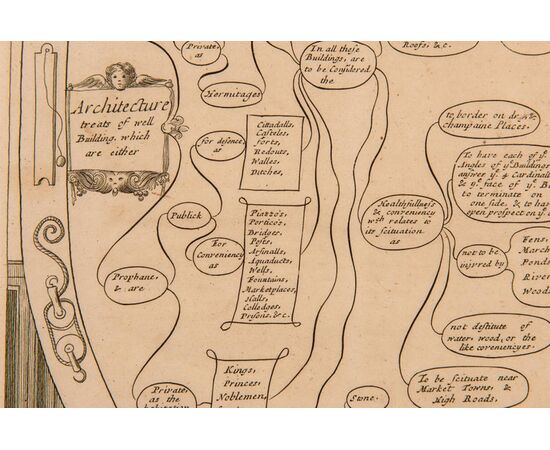 Private,
as
Hermitages
In all these
Buildings, are
to be Considered
the
Roofs, & c.
Architecture
treats of well
Building, which
are either
for defence,
as
Cittadalls,
Castles,
forts,
Redouts,
Walles,
Ditches,
Publick
For
Conveniency
as
Piazzo's,
Portico's,
Bridges,
Arsinalls,
Aquaducts,
Wells,
Fountains,
Marketplaces,
Halls,
Colledges,
Prisons, & c.
Prophane,
& are
Private,
as the
Kings,
Princes,
Noblemen,
Healthfullness
& conveniency
wch relates to
its scituation
as
to border on
champaine Places.
To have each of ye
Angles of ye Buildings
answer ye 4 Cardinall
& ye face of ye
to terminate on
one side, & to
open prospect on ye
not to be
injured by
Fens,
Ponds
River
Woods
not destitute of
water, wood, or the
like coveniencyes.
To be scituate near
Market Towns, &
High Roads,
Stone.